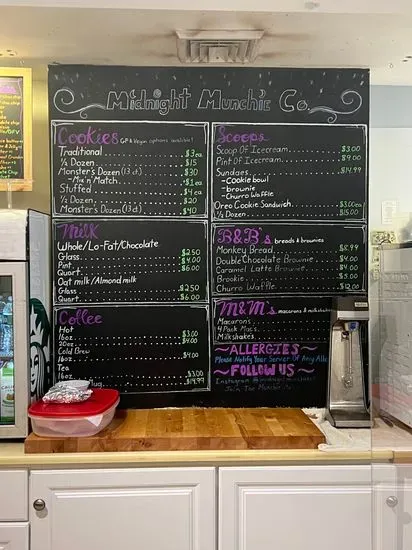 Midnight Munchie Co.
Cookies GF & Vegan options available!
Traditional $3ea
½ Dozen $15
Monster's Dozen (13 ct.) $30
-Mix n' Match +$1ea
Stuffed $4ea
½ Dozen $20
Monster's Dozen (13 ct) $40
Milk
Whole/Lo-Fat/Chocolate
Glass $2.50
Pint $4.00
Quart $6.00
Oat milk/Almond milk
Glass $2.50
Quart $6.00
Coffee
Hot
16oz $3.00
20oz $4.00
Cold Brew
16oz $4.00
Tea
16oz $3.00
Mug $14.99
Scoops
Scoop Of Icecream $3.00
Pint Of Icecream $9.00
Sundaes $14.99
-Cookie bowl
-brownie
-Churro Waffle
Oreo Cookie Sandwich $3.00ea
½ Dozen $15.00
B&B's breads & brownies
Monkey Bread $8.99
Double Chocolate Brownie $4.00
Caramel Latte Brownie $4.00
Brookie $5.00
Churro Waffle $12.00
M&M's macarons & milkshakes
Macarons
4 Pack Macs
Milkshakes
~ALLERGIES~
Please Notify Your Server Of Any
~FOLLOW US~
Instagram
Join The Munchie Co